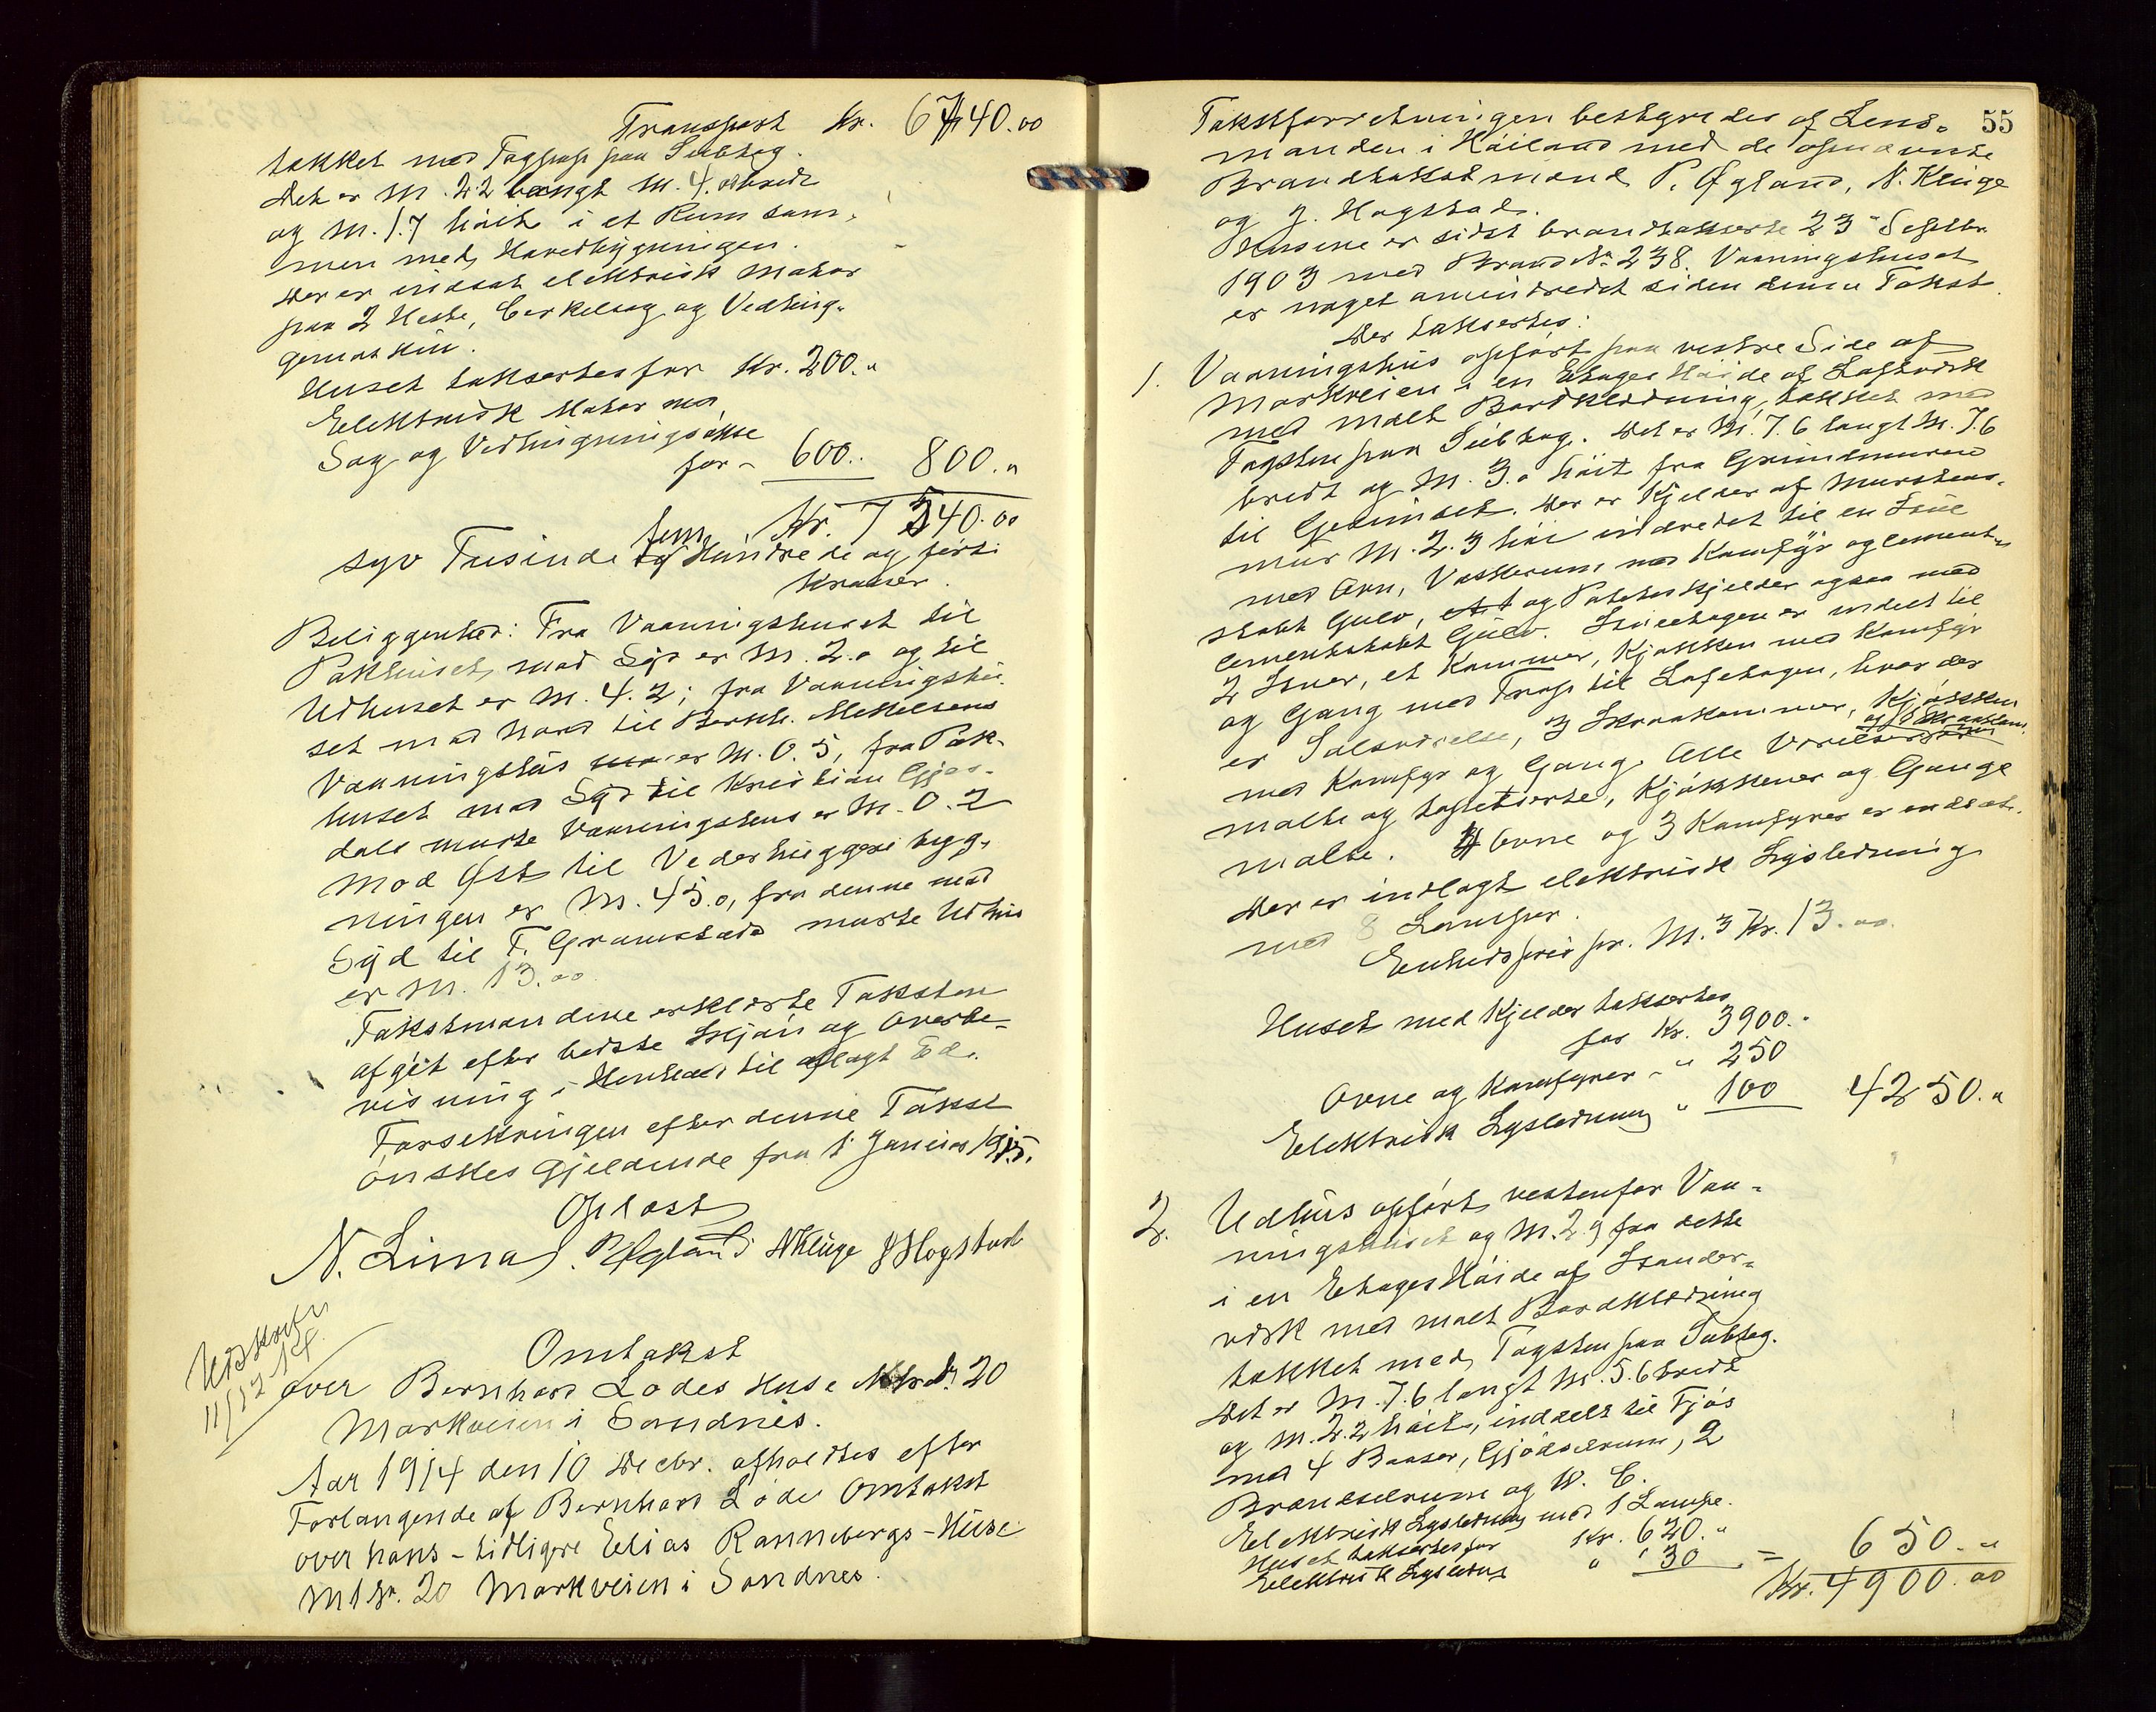 Transport Kr. 6740.00
tækket med Tagspaan paa Subtag.
Det er M. 2.2 langt M. 4.0 bredt
og M. 1.7 höit i et Rum sam-
men med Hovedbygningen.
Der er indsat elektrisk Motor
paa 2 Heste, Cirkelsag og Vedhug-
gemaskin.
Huset taksertes for Kr. 200."
Elektrisk Motor med
Sag og Vedhugningsøkse
for - 600.. 800."
Kr. 7540.00
syv Tusinde fem Hundrede og förti
Kroner.
Beliggenhed: Fra Vaaningshuset til
Pakhuset mod Syd er M. 2.0 og til
Udhuset er M. 4.2; fra Vaaningshu-
set mod Nord til Berth. Mikkelsens
Vaaningshus er M. 0.5, fra Pak-
huset mod Syd til Kristian Gjes-
dals murte Vaaningshus er M. 0.2
mod Øst til Vederhuggeri bygg-
ningen er M. 45.0, fra denne mod
Syd til T. Gramstads murte Udhus
er M. 13.00
Takstmændene erklærte Taksten
afgit efter bedste Skjön og Overbe-
visning i Henhold til aflagt Ed.
Forsikringen efter denne Takst
önskes gjeldende fra 1 Januar 1915.
Oplæst
N. Lima. P. Øgland N Kluge J Hogstad
Udskrift
11/12 14.
Omtakst
over Bernhard Lodes Huse Mtr. Nr. 20
Markveien i Sandnes.
Aar 1914 den 10 Decbr. afholdtes efter
Forlangende af Bernhard Lode Omtakst
over hans - tidligere Elias Rannebergs - Huse
Mt Nr. 20 Markveien i Sandnes.
55
Takstforretningen bestyredes af Lens-
manden i Höiland med de opnævnte
Brandtakstmænd P. Øgland, N. Kluge
og J. Hogstad.
Husene er sidst brandtakserte 23 Septbr.
1903 med Brand Nr. 238. Vaaningshuset
er noget omindredet siden denne Takst.
Der taksertes:
1. Vaaningshus opfört paa vestre Side af
Markveien i en Etages Höide af Loftvirk
med malt Bordklædning, tækket med
Tagsten paa Subtag. Det er M. 7.6 langt M. 7.6
bredt og M. 3.0 höit fra Grundmuren
til Gesimset. Der er Kjelder af Murstens-
mur M. 2.3 höi indredet til en Stue
med Ovn, Vaskerum med Komfyr og cement-
støbt Gulv, og Potetes Kjelder ogsaa med
cementstøbt Gulv. Stueetagen er inddelt til
2 Stuer, et Kammer, Kjøkken med Komfyr
og Gang med Trap til Loftetagen, hvor der
er Salsværelse, 3 Skraakammer, Kjökken
med Komfyr og Gang. Alle Værelser og 1 Skraakam.
malte og tapetserte, Kjøkkener og Gange
malte. 4 Ovne og 3 Komfyrer er indsat.
Der er indlagt elektrisk Lysledning
med 8 Lamper.
Enhedspris pr. M.3 Kr. 13.00
Huset med Kjelder taksertes
for Kr. 3900."
Ovne og Komfyrer - " 250
Elektrisk Lysledning " 100 4250."
2. Udhus opfört vestenfor Vaa-
ningshuset og M. 2.9 fra dette
i en Etages Höide af Stander-
virk med malt Bordklædning
tækket med Tagsten paa Subtag.
Det er M. 7.6 langt M. 5.6 bredt
og M. 2.2 höit, inddelt til Fjös
med 4 Baaser, Gjødselrum, 2
Brændselrum og W. C.
Elektrisk Lysledning med 1 Lampe.
Huset taksertes for Kr. 620."
Elektrisk Lysledng " 30 = 650."
Kr. 4900.00